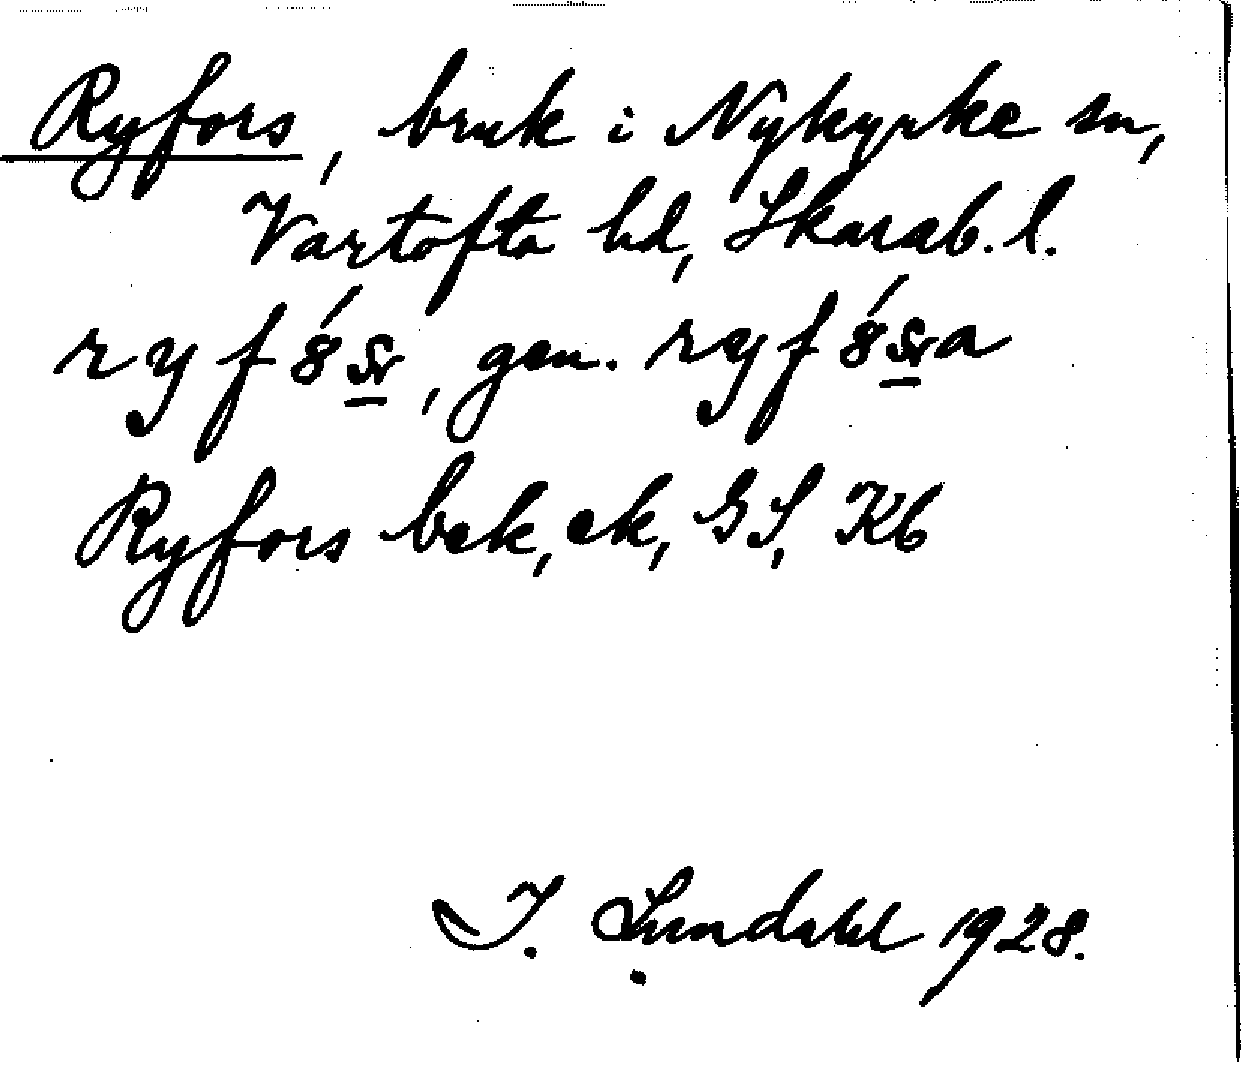 Ryfors, bruk i Nykyrke sn,
Vartofta hd, Skarab. l.
ryf, gen. ryf
Ryfors bek, ek, GS, Kb
I. Lundahl 1928.